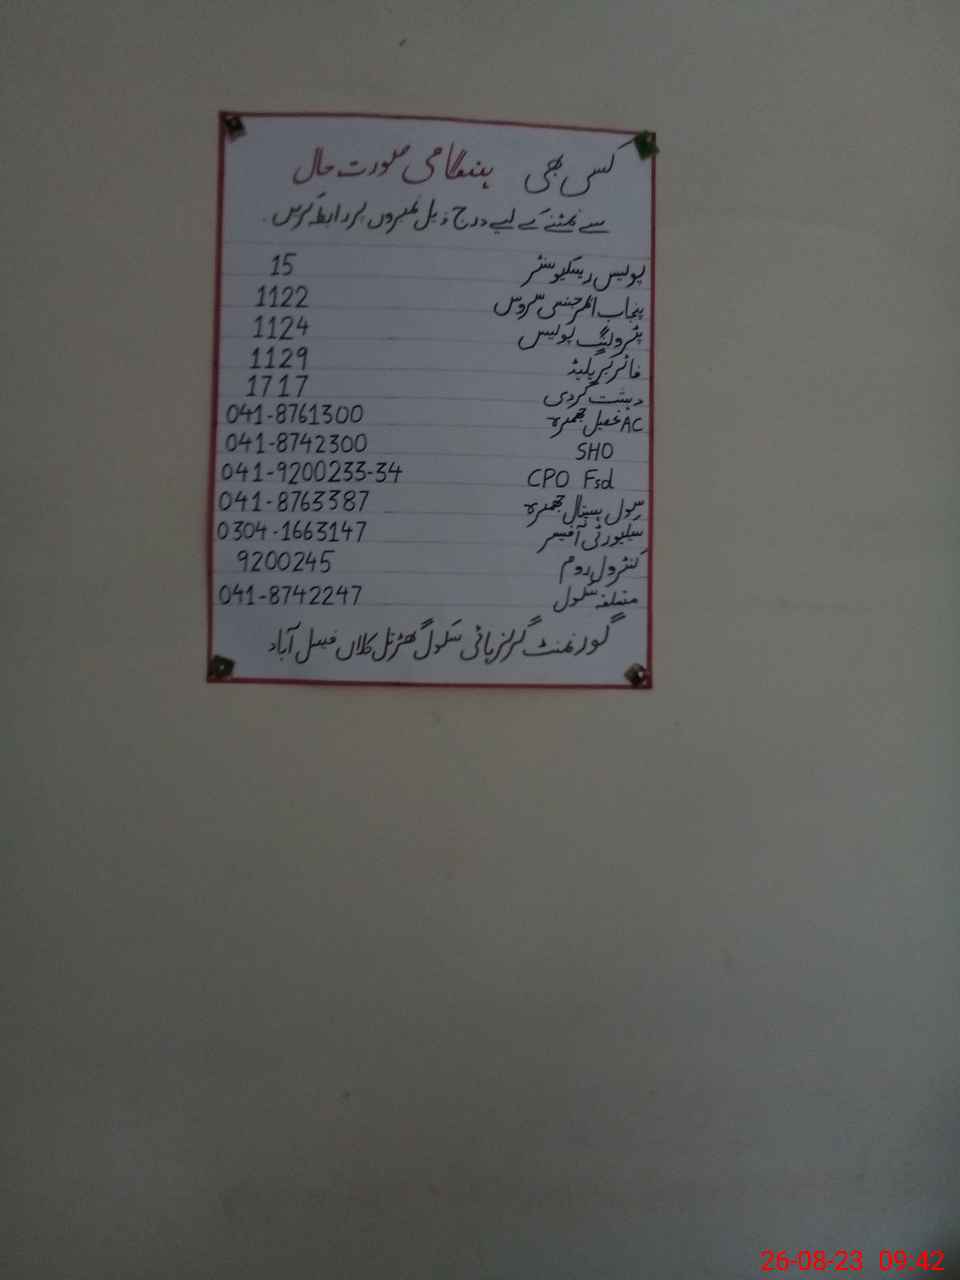 کسی بھی ہنگامی صورت حال
سے نمٹنے کے لیے درج ذیل نمبروں پر رابطہ کریں۔
پولیس ریسکیو سنٹر 15
پنجاب ایمرجنسی سروس 1122
پٹرولنگ پولیس 1124
فائر بریگیڈ 1129
دہشت گردی 1717
AC تحصیل جھمرہ 041-8761300
SHO 041-8742300
CPO Fsd 041-9200233-34
سول ہسپتال جھمرہ 041-8763387
سکیورٹی آفیسر 0304-1663147
کنٹرول روم 9200245
متعلقہ سکول 041-8742247
گورنمنٹ گرلز ہائی سکول کلاں فیصل آباد
26-08-23 09:42